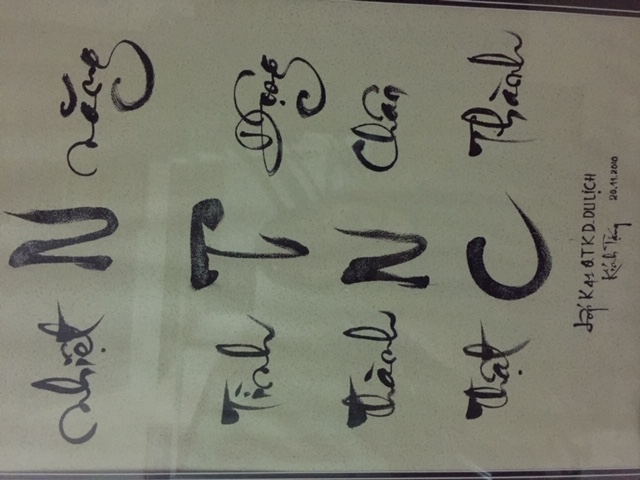 Nhiệt N năng
Tình T Động
thành N Chân
thật C Thành
Lớp K41 Q.T.K.D. DU LỊCH
Kính Tặng 20.11.2010